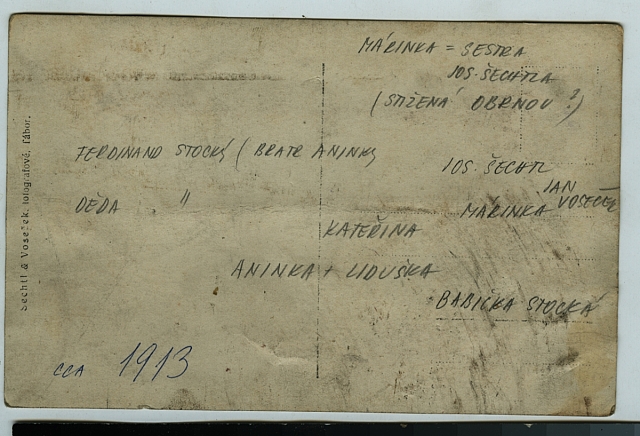 MÁŘINKA = SESTRA
JOS. ŠECHTLA
(STIŽENÁ OBRNOU ?)
FERDINAND STOCKÝ (BRATR ANINKY
JOS. ŠECHTL
JAN VOSEČEK
DĚDA "
MÁŘINKA
KATEŘINA
ANINKA + LIDUŠKA
BABIČKA STOCKÁ
CCA 1913
Šechtl & Voseček, fotografové, Tábor.